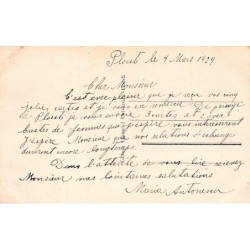 Ploust le 4 Mars 1929
Cher Monsieur
C'est avec plaisir que j'ai reçu vos cinq
jolies cartes et je vous en remercie De
le Ploust je vous envoie 3 cartes et 2 vues
Costes de femmes que j'espère vous intéresseront
J'espère Monsieur que nos relations d'échange
dureront encore longtemps.
Dans l'attente de vous lire recevez
Monsieur mes lointaines salutations
Maria